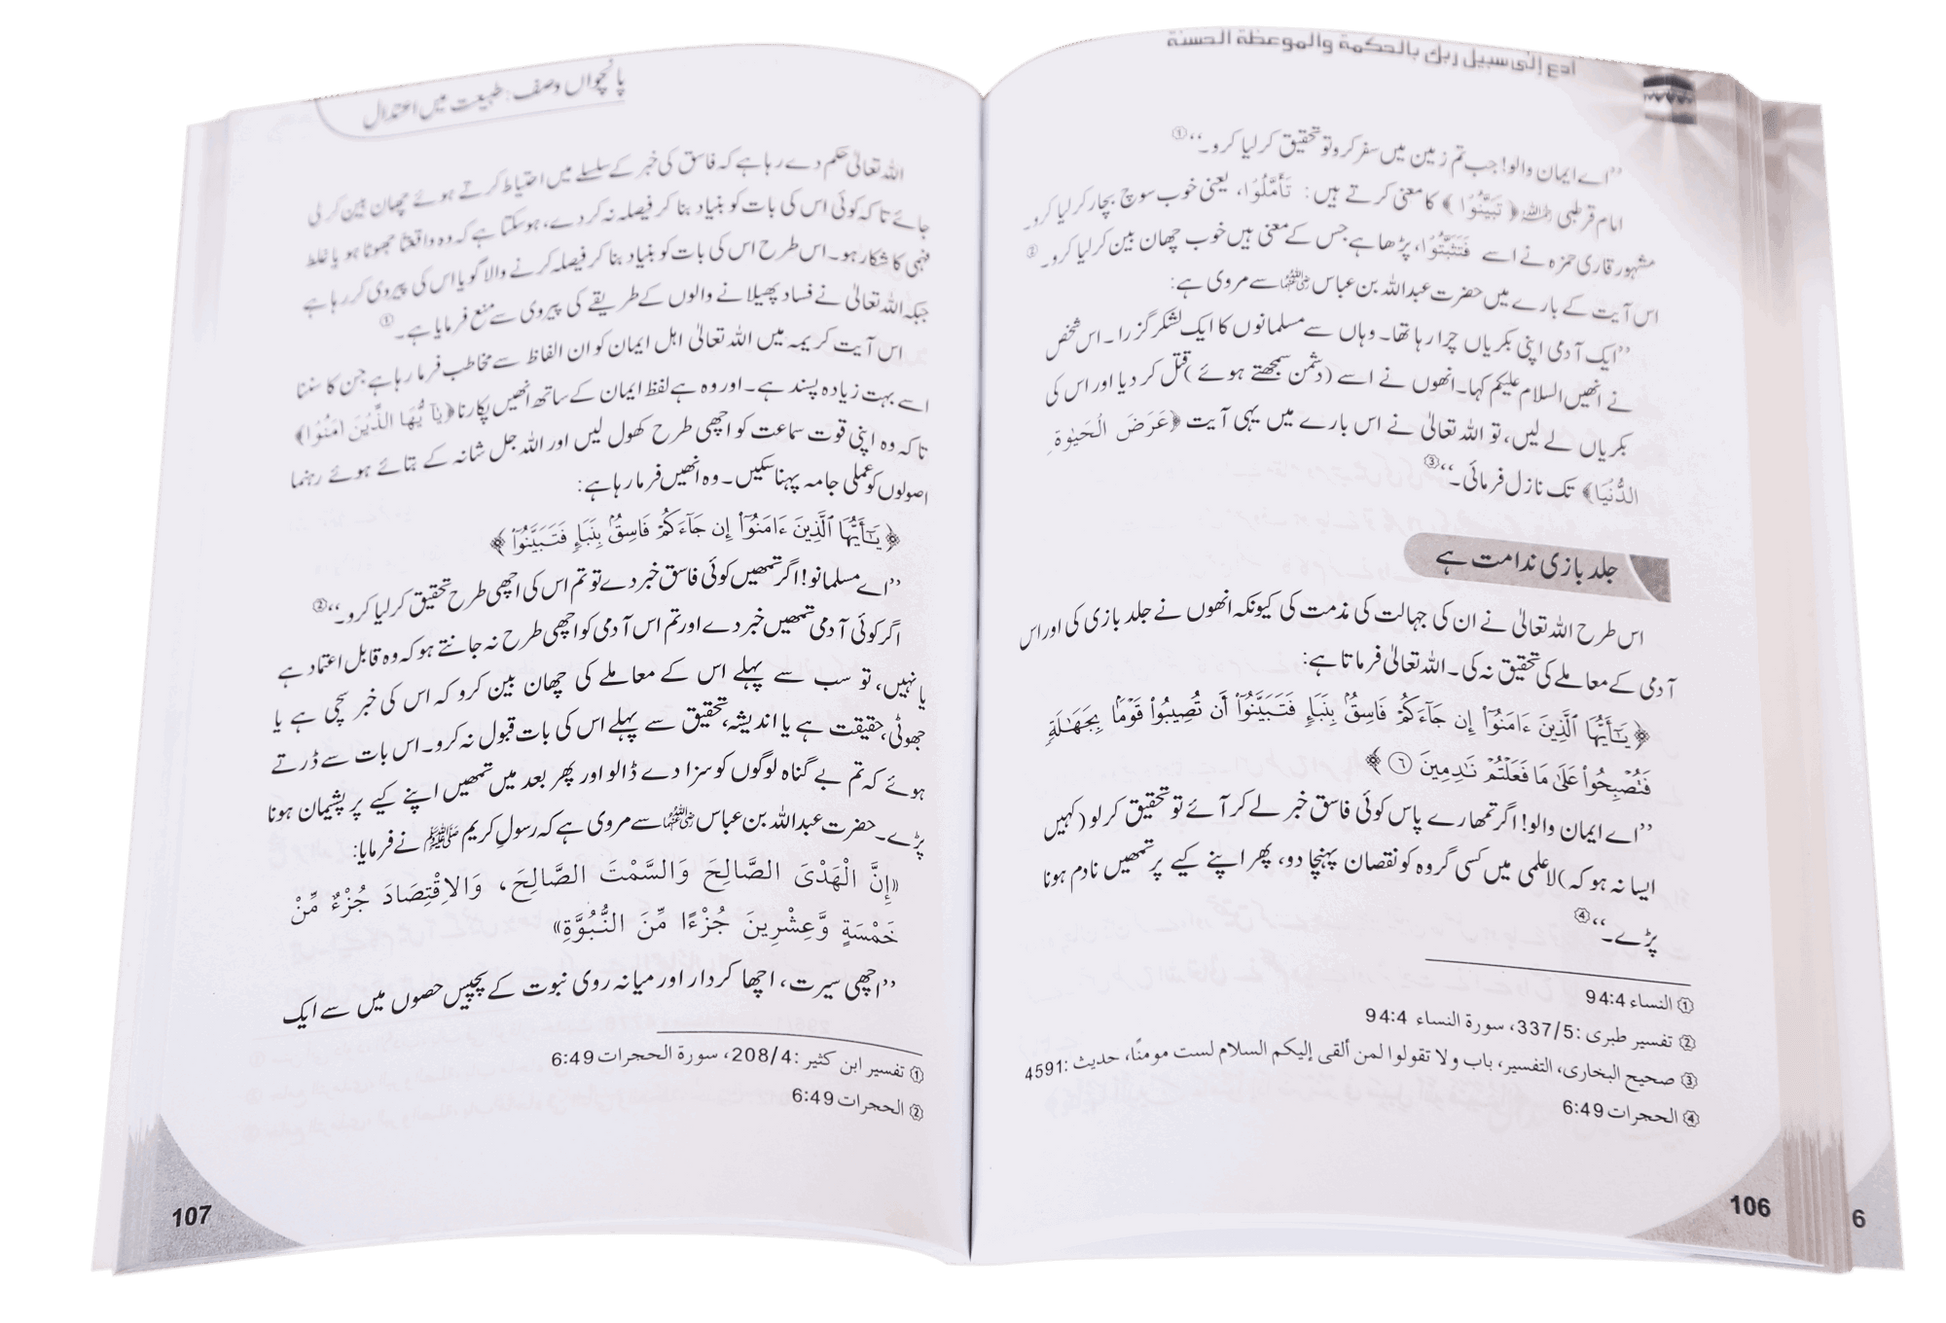 ادع إلى سبيل ربك بالحكمة والموعظة الحسنة
’’اے ایمان والو! جب تم زمین میں سفر کرو تو تحقیق کر لیا کرو۔‘‘①
امام قرطبی رحمہ اللہ ﴿تَبَيَّنُوْا﴾ کا معنی کرتے ہیں: تَأَمَّلُوْا، یعنی خوب سوچ بچار کر لیا کرو۔
مشہور قاری حمزہ نے اسے فَتَثَبَّتُوْا، پڑھا ہے جس کے معنی ہیں خوب چھان بین کر لیا کرو۔②
اس آیت کے بارے میں حضرت عبداللہ بن عباس رضی اللہ عنہما سے مروی ہے:
’’ایک آدمی اپنی بکریاں چرا رہا تھا۔ وہاں سے مسلمانوں کا ایک لشکر گزرا۔ اس شخص
نے انھیں السلام علیکم کہا۔ انھوں نے اسے (دشمن سمجھتے ہوئے) قتل کر دیا اور اس کی
بکریاں لے لیں، تو اللہ تعالیٰ نے اس بارے میں یہی آیت ﴿عَرَضَ الْحَيٰوةِ
الدُّنْيَا﴾ تک نازل فرمائی۔‘‘③
جلد بازی ندامت ہے
اس طرح اللہ تعالیٰ نے ان کی جہالت کی مذمت کی کیونکہ انھوں نے جلد بازی کی اور اس
آدمی کے معاملے کی تحقیق نہ کی۔ اللہ تعالیٰ فرماتا ہے:
﴿يَٰٓأَيُّهَا ٱلَّذِينَ ءَامَنُوٓاْ إِن جَآءَكُمۡ فَاسِقُۢ بِنَبَإٖ فَتَبَيَّنُوٓاْ أَن تُصِيبُواْ قَوۡمَۢا بِجَهَٰلَةٖ
فَتُصۡبِحُواْ عَلَىٰ مَا فَعَلۡتُمۡ نَٰدِمِينَ ٦﴾
’’اے ایمان والو! اگر تمھارے پاس کوئی فاسق خبر لے کر آئے تو تحقیق کر لو (کہیں
ایسا نہ ہو کہ) لاعلمی میں کسی گروہ کو نقصان پہنچا دو، پھر اپنے کیے پر تمھیں نادم ہونا
پڑے۔‘‘④
① النساء 94:4
② تفسير طبری: 337/5، سورة النساء 94:4
③ صحيح البخاری، التفسير، باب ولا تقولوا لمن ألقى إليكم السلام لست مومنًا، حديث: 4591
④ الحجرات 6:49
106
6
پانچواں وصف: طبیعت میں اعتدال
اللہ تعالیٰ حکم دے رہا ہے کہ فاسق کی خبر کے سلسلے میں احتیاط کرتے ہوئے چھان بین کر لی
جائے تاکہ کوئی اس کی بات کو بنیاد بنا کر فیصلہ نہ کر دے، ہو سکتا ہے کہ وہ واقعتًا جھوٹا ہو یا غلط
فہمی کا شکار ہو۔ اس طرح اس کی بات کو بنیاد بنا کر فیصلہ کرنے والا گویا اس کی پیروی کر رہا ہے
جبکہ اللہ تعالیٰ نے فساد پھیلانے والوں کے طریقے کی پیروی سے منع فرمایا ہے۔①
اس آیت کریمہ میں اللہ تعالیٰ اہل ایمان کو ان الفاظ سے مخاطب فرما رہا ہے جن کا سننا
اسے بہت زیادہ پسند ہے۔ اور وہ ہے لفظ ایمان کے ساتھ انھیں پکارنا ﴿يٰٓاَيُّهَا الَّذِيْنَ اٰمَنُوْا﴾
تاکہ وہ اپنی قوت سماعت کو اچھی طرح کھول لیں اور اللہ جل شانہ کے بتائے ہوئے رہنما
اصولوں کو عملی جامہ پہنا سکیں۔ وہ انھیں فرما رہا ہے:
﴿يَٰٓأَيُّهَا ٱلَّذِينَ ءَامَنُوٓاْ إِن جَآءَكُمۡ فَاسِقُۢ بِنَبَإٖ فَتَبَيَّنُوٓاْ﴾
’’اے مسلمانو! اگر تمھیں کوئی فاسق خبر دے تو تم اس کی اچھی طرح تحقیق کر لیا کرو۔‘‘②
اگر کوئی آدمی تمھیں خبر دے اور تم اس آدمی کو اچھی طرح نہ جانتے ہو کہ وہ قابل اعتماد ہے
یا نہیں، تو سب سے پہلے اس کے معاملے کی چھان بین کرو کہ اس کی خبر سچی ہے یا
جھوٹی، حقیقت ہے یا اندیشہ، تحقیق سے پہلے اس کی بات قبول نہ کرو۔ اس بات سے ڈرتے
ہوئے کہ تم بے گناہ لوگوں کو سزا دے ڈالو اور پھر بعد میں تمھیں اپنے کیے پر پشیمان ہونا
پڑے۔ حضرت عبداللہ بن عباس رضی اللہ عنہما سے مروی ہے کہ رسول کریم ﷺ نے فرمایا:
«إِنَّ الْهَدْىَ الصَّالِحَ وَالسَّمْتَ الصَّالِحَ، وَالاِقْتِصَادَ جُزْءٌ مِّنْ
خَمْسَةٍ وَّعِشْرِينَ جُزْءًا مِّنَ النُّبُوَّةِ»
’’اچھی سیرت، اچھا کردار اور میانہ روی نبوت کے پچیس حصوں میں سے ایک
① تفسير ابن كثير: 208/4، سورة الحجرات 6:49
② الحجرات 6:49
107